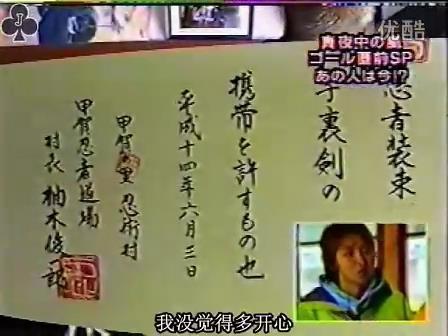 优酷
真夜中の嵐
ゴール直前SP
あの人は今!?
忍者装束
手裏剣の
携帯を許すもの也
平成十四年六月三日
甲賀の里 忍術村
甲賀忍者道場
村長 柚木俊一郎
我没觉得多开心